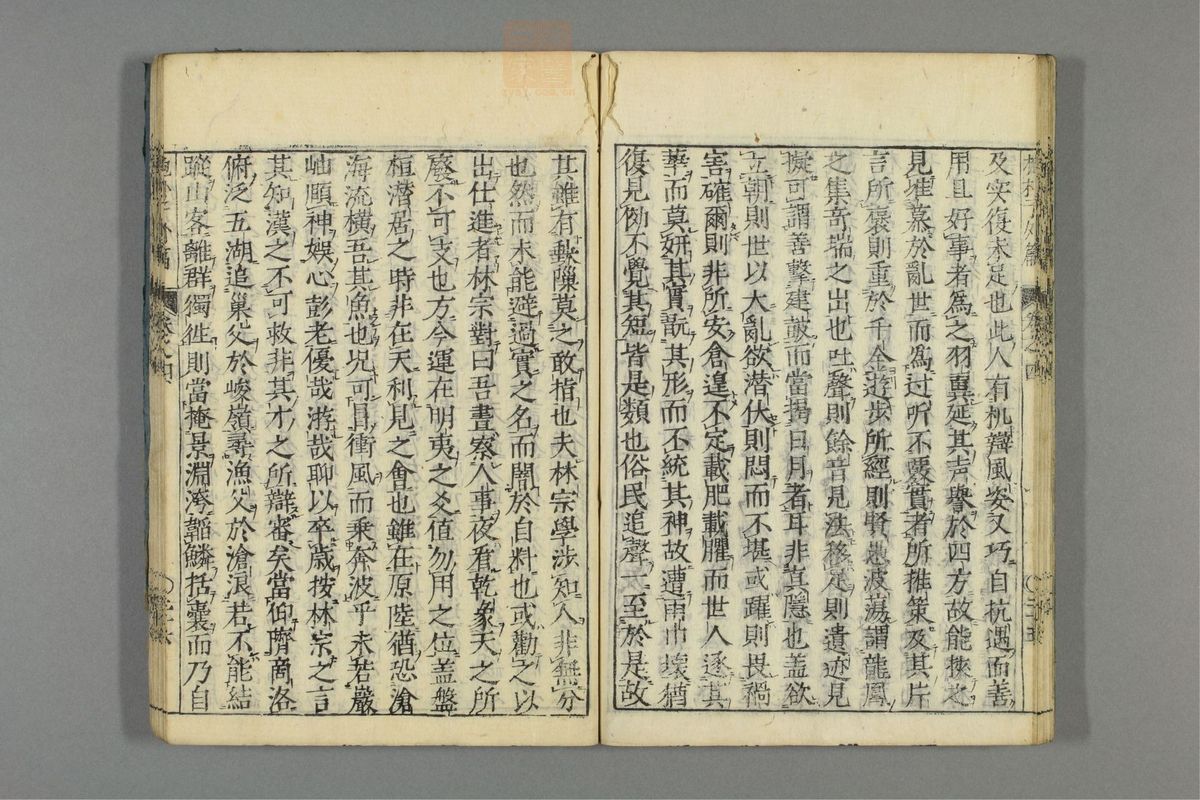 及安復未足也此人有机辯風姿又巧自抗遇而善
用且好事者為之羽翼延其声譽於四方故能挾之
見准慕於亂世而為过听不覈實者所推策及其片
言所褒則重於千金遊步所經則賢愚波蕩謂龍鳳
之集奇瑞之出也吐聲則餘音見法移足則遺迹見
擬可謂善擊建鼓而當揭日月者耳非真隱也盖欲
立朝則世以大亂欲潛伏則悶而不堪或躍則畏禍
害確爾則非所安倉遑不定載肥載臞而世人逐其
華而莫妍其實翫其形而不統其神故遭雨巾壞猶
復見効不覺其短皆是類也俗民追聲一至於是故
其雖有缺隟莫之敢指也夫林宗學涉知人非無分
也然而未能避過實之名而闇於自料也或勸之以
出仕進者林宗對曰吾晝察人事夜看乾象天之所
廢不可支也方今運在明夷之爻值勿用之位盖盤
桓潛居之時非在天利見之會也雖在原陸猶恐滄
海流橫吾其魚也况可冒衝風而乘奔波乎未若巖
岫頤神娛心彭老優哉游哉聊以卒歲按林宗之言
其知漢之不可救非其才之所辯審矣當仰隮商洛
俯泛五湖追巢父於峻嶺尋漁父於滄浪若不能結
蹤山客離群獨徃則當掩景淵洿韜鱗括囊而乃自